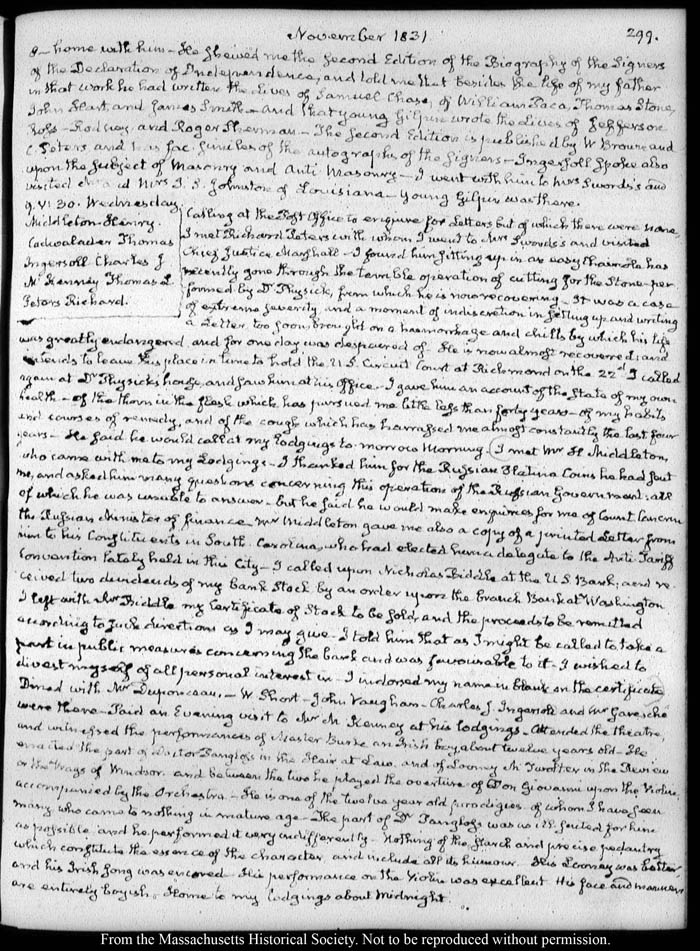 November 1831.
299.
home with him – He shewed me the Second Edition of the Biography of the Signers
of the Declaration of Independence, and told me that besides the life of my father
in that work he had written the Lives of Samuel Chase, of William Paca, Thomas Stone,
John Hart, and James Smith – and that young Gilpin wrote the Lives of Jefferson
Ross – Rodney, and Roger Sherman – The Second Edition is published by W Brown and
C. Peters and has fac similes of the autographs of the Signers – Ingersoll spoke also
upon the subject of Masonry and Anti Masonry – I went with him to Mrs Sword's and
visited Mr and Mrs J. S. Johnston of Louisiana – Young Gilpin was there.
9. VI:30. Wednesday.
Middleton. Henry.
Cadwalader Thomas
Ingersoll Charles J
Mc Kenney Thomas L.
Peters Richard.
Calling at the Post Office to enquire for Letters but of which there were none,
I met Richard Peters with whom I went to Mrs Sword's and visited
Chief Justice Marshall – I found him sitting up in an easy chair – he has
recently gone through the terrible operation of cutting for the Stone – per
formed by Dr Physick, from which he is now recovering – It was a case
of extreme severity, and a moment of indiscretion in getting up and writing
a Letter too soon, brought on a haemorrhage and chills by which his life
was greatly endangered, and for one day was despaired of. He is now almost recovered; and
intends to leave this place in time to hold the U.S. Circuit Court at Richmond on the 22d I called
again at Dr Physick's house, and saw him at his office – I gave him an account of the State of my own
health – of the thorn in the flesh which has pursued me little less than forty years – of my habits
and courses of remedy, and of the cough which has harrassed me almost constantly the last four
years – He said he would call at my lodgings to-morrow Morning. I met Mr H Middleton,
who came with me to my Lodgings – I thanked him for the Russian Platina Coins he had sent
me, and asked him many questions concerning this operation of the Russian Government; all
of which he was unable to answer – but he said he would make enquiries for me of Count Cancrin
the Russian Minister of finance. Mr Middleton gave me also a copy of a printed Letter from
him to his Constituents in South Carolina, who had elected him a delegate to the Anti Tariff
Convention lately held in this City – I called upon Nicholas Biddle at the U S Bank, and re
ceived two dividends of my bank Stock by an order upon the branch Bank at Washington
I left with Mr Biddle my Certificate of Stock to be sold, and the proceeds to be remitted
according to such directions as I may give – I told him that as I might be called to take a
part in public measures concerning the bank and was favourable to it – I wished to
divest myself of all personal interest in – I indorsed my name in blank on the certificate
Dined with Mr Duponceau. – W Short – John Vaughan – Charles J Ingersoll and Mr Garesche
were there – Paid an Evening visit to Mr Mc Kenney at his lodgings – Attended the theatre,
and witnessed the performances of Master Burke an Irish boy about twelve years old – He
enacted the part of Doctor Pangloss in the Heir at Law, and of Looney Mc Twolter in the Review
or the Wags of Windsor. and between the two he played the overture of Don Giovanni upon the Violin,
accompanied by the Orchestra – He is one of the twelve year old prodigies of whom I have seen
many who came to nothing in mature age – The part of Dr Pangloss was as ill suited for him
as possible, and he performed it very indifferently – Nothing of the starch and precise pedantry
which constitute the essence of the character, and include all its humour. His Looney was better,
and his Irish Song was encored – His performance on the Violin was excellent His face and manners
are entirely boyish – Home to my lodgings about Midnight.
From the Massachusetts Historical Society. Not to be reproduced without permission.